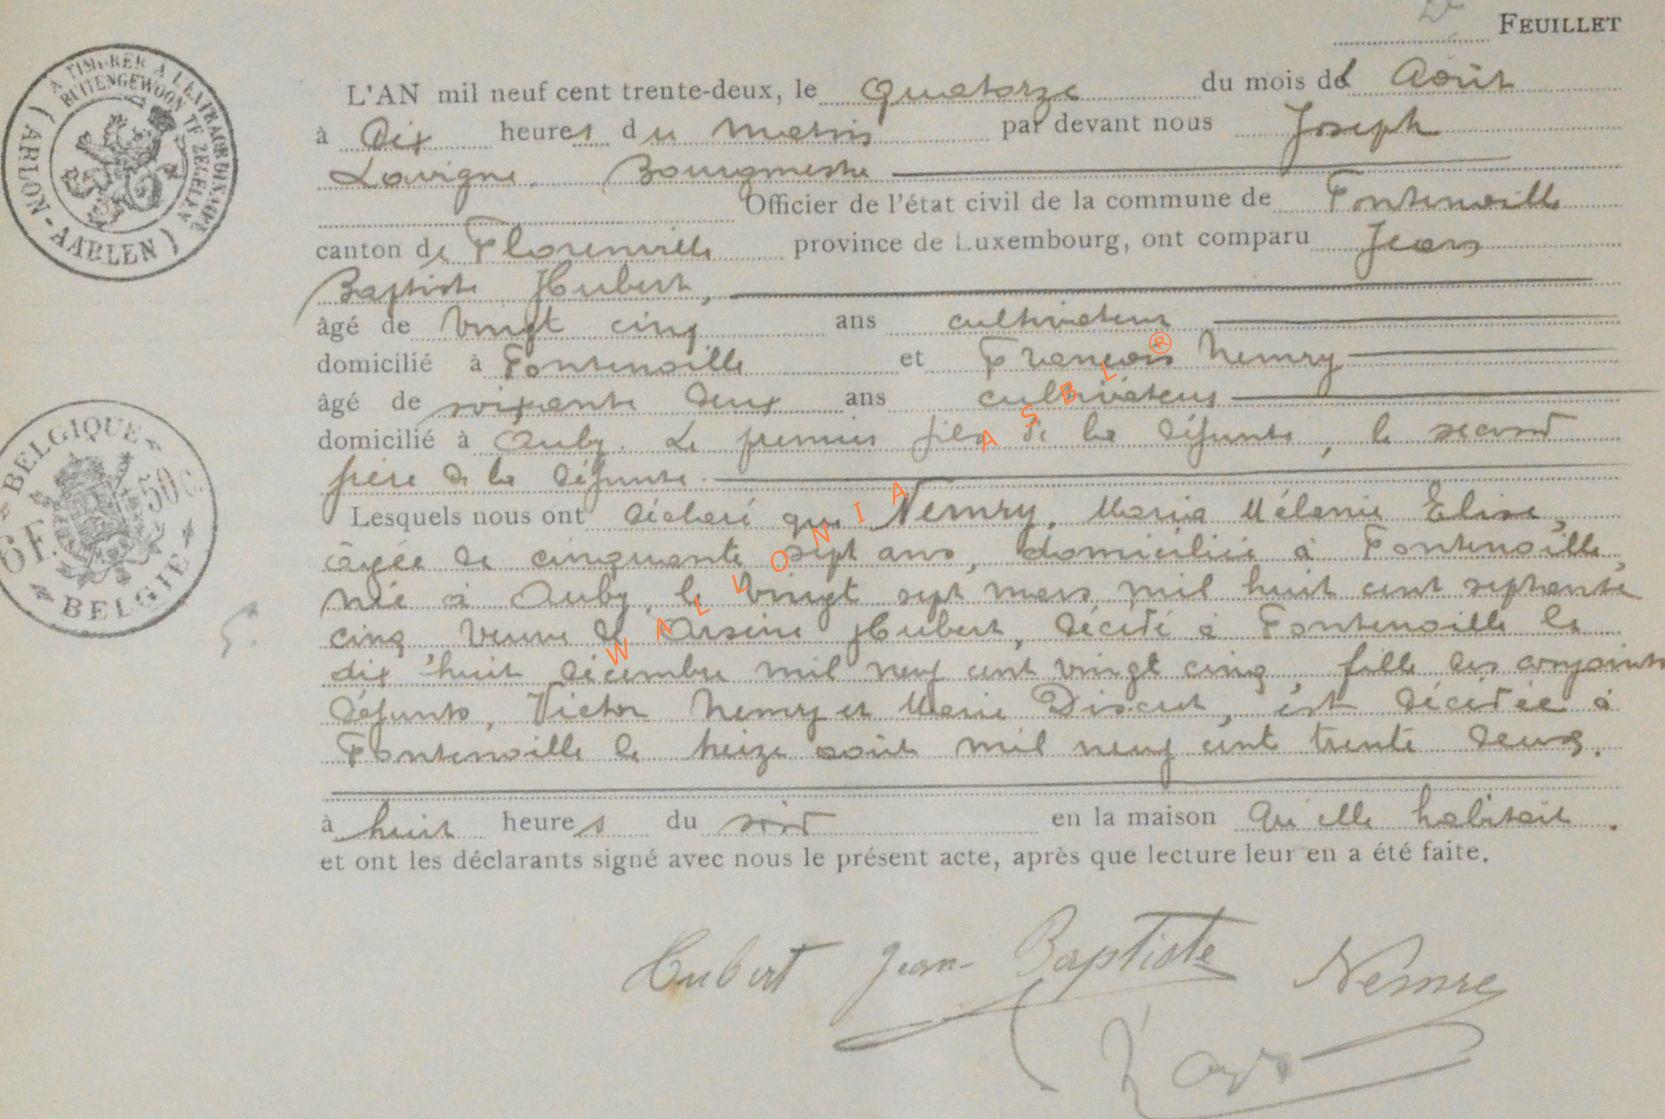 FEUILLET
L'AN mil neuf cent trente-deux, le quatorze du mois de Août
à dix heures du matin par devant nous Joseph
Lavigne, Bourgmestre
Officier de l'état civil de la commune de Fontenoille
canton de Florenville province de Luxembourg, ont comparu Jean
Baptiste Hubert,
âgé de vingt cinq ans cultivateur
domicilié à Fontenoille et François Nemry
âgé de soixante deux ans cultivateur
domicilié à Auby. Le premier fils de la défunte, le second
frère de la défunte.
Lesquels nous ont déclaré que Nemry, Maria Mélanie Elise,
âgée de cinquante sept ans, domiciliée à Fontenoille,
née à Auby, le vingt sept mars mil huit cent septante
cinq veuve de Arsène Hubert, décédé à Fontenoille le
dix huit décembre mil neuf cent vingt cinq, fille des conjoints
défunts, Victor Nemry et Marie, est décédée à
Fontenoille le treize août mil neuf cent trente deux.
à huit heures du soir en la maison qu'elle habitait.
et ont les déclarants signé avec nous le présent acte, après que lecture leur en a été faite.
Hubert Jean-Baptiste Nemre
A TIMBRER A L'EXTRAORDINAIRE
BUITENGEWOON TE ZEGELEN
(ARLON-AARLEN)
BELGIQUE
6F. 50C
BELGIE
WALLONIA ASBL ®